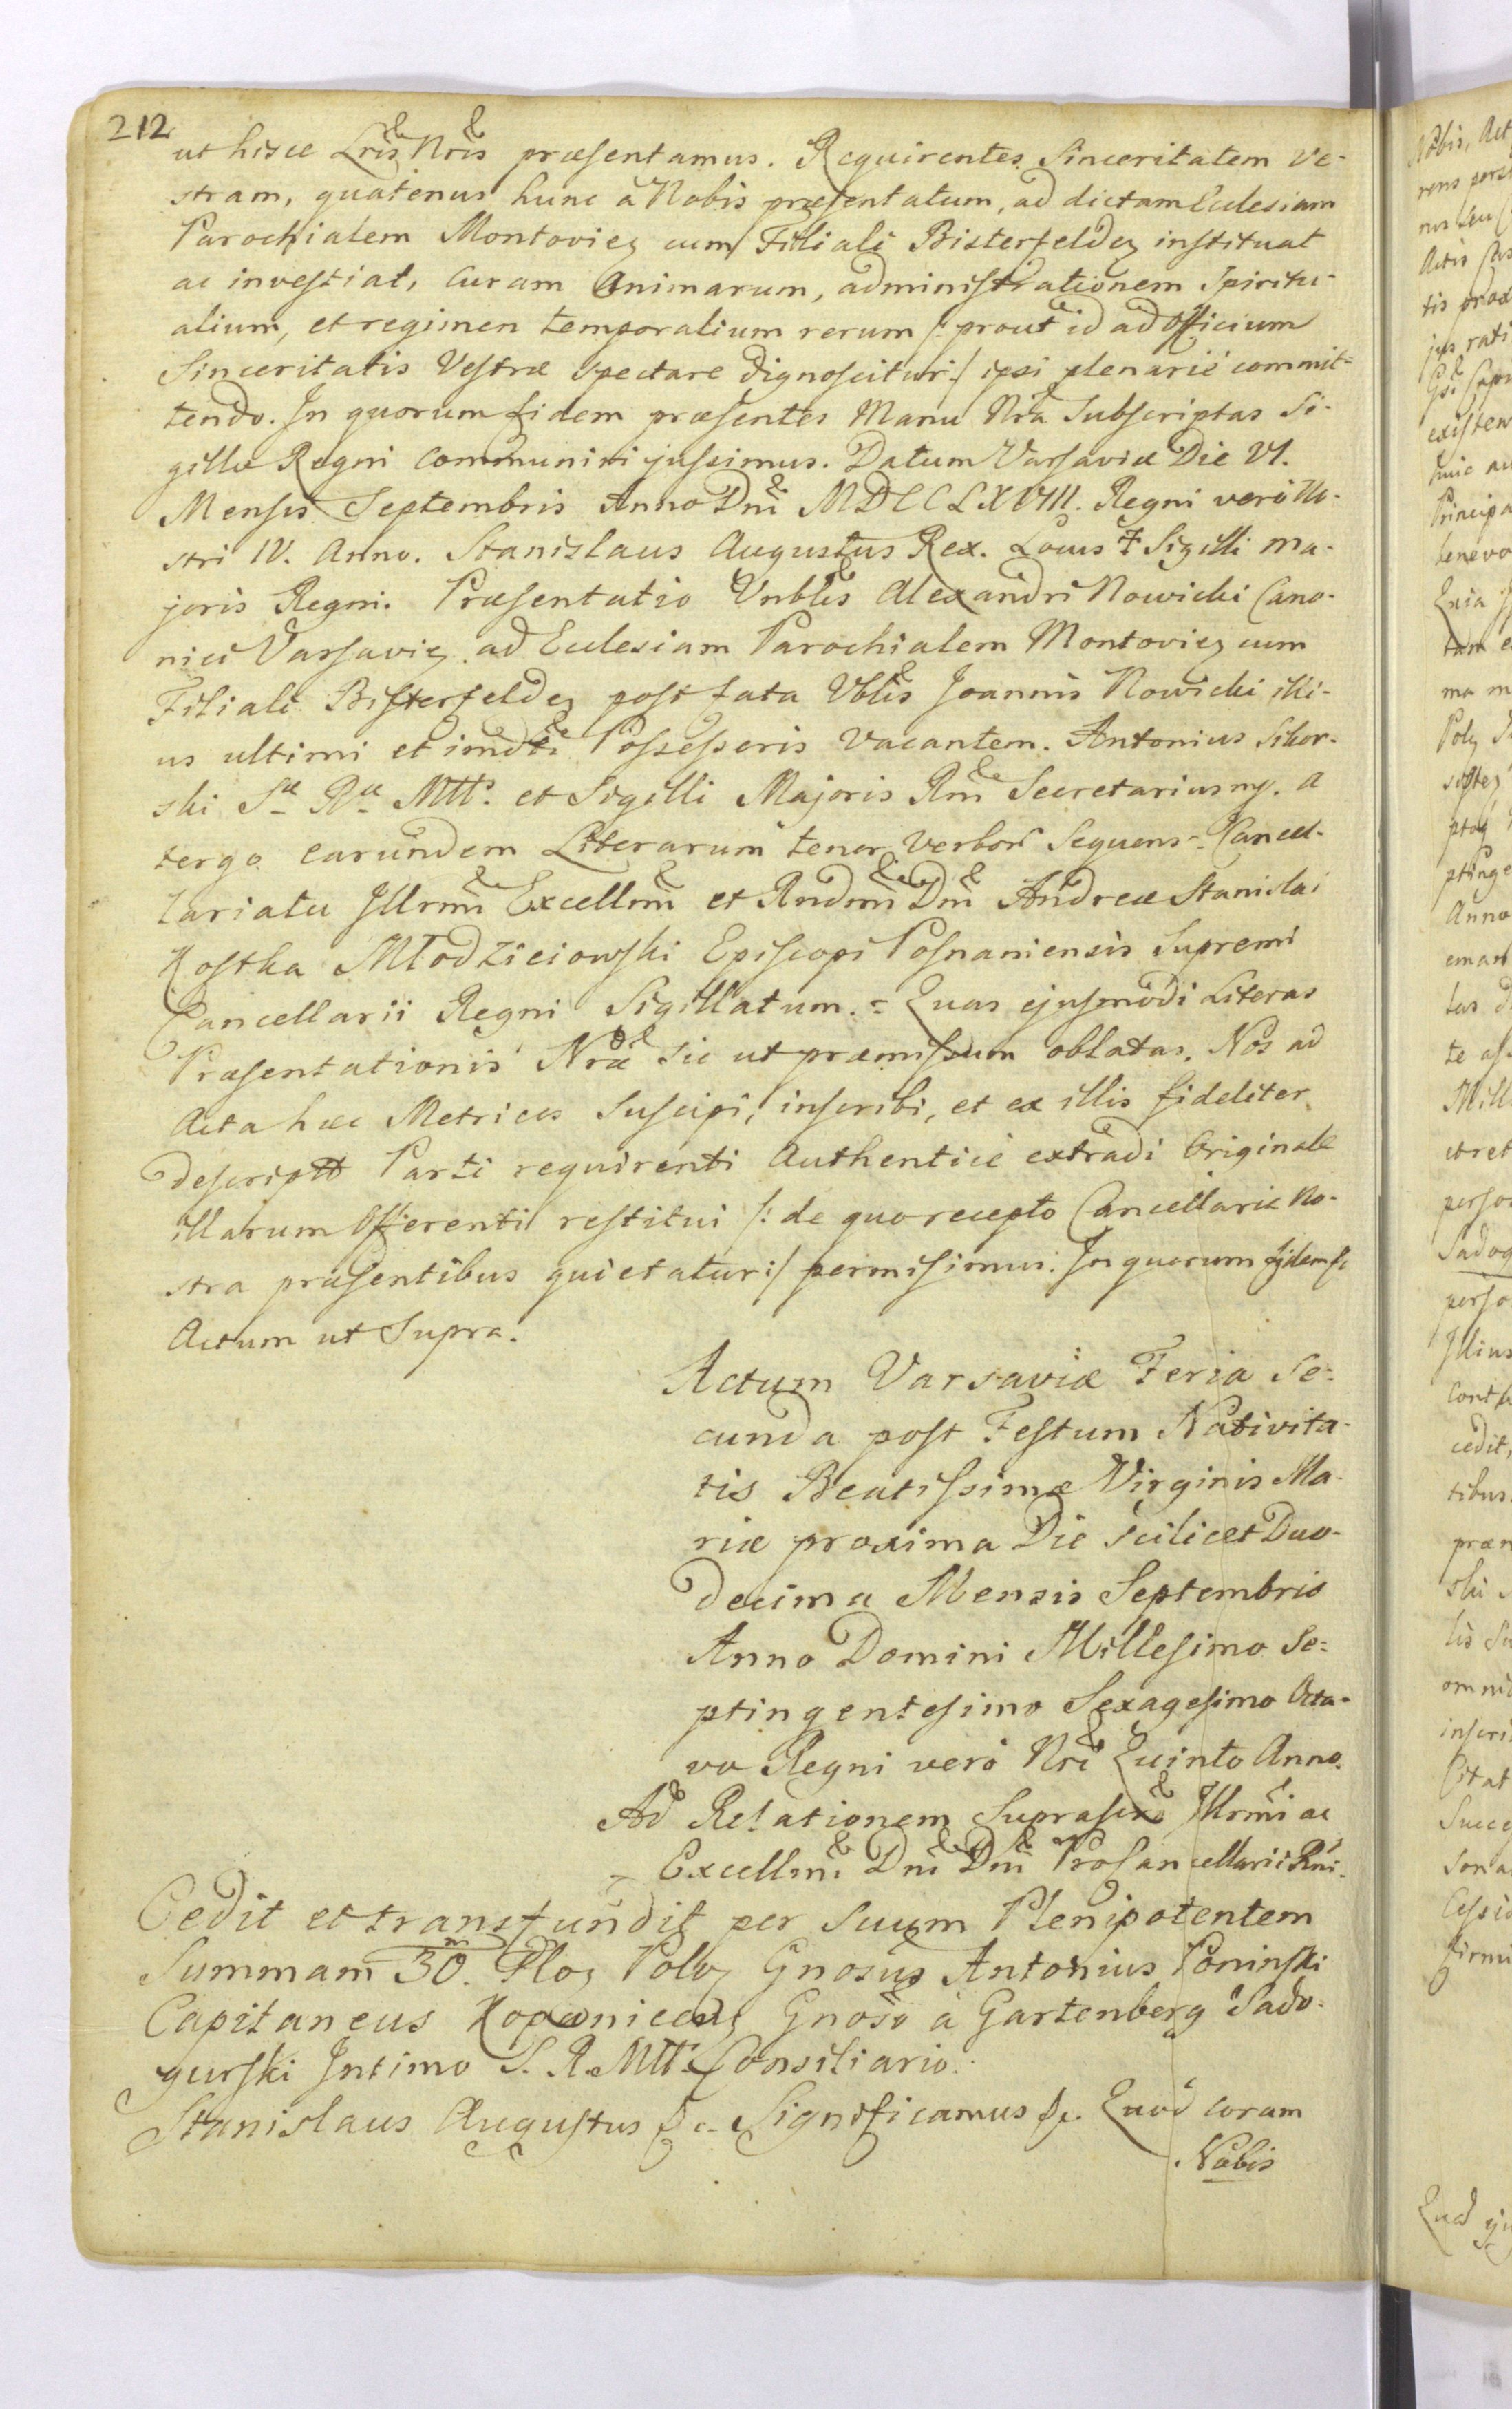 212
ut hisce Lris Nris præsentamus. Requirentes Sinceritatem Ve-
stram, quatenus hunc à Nobis præsentatum, ad dictam Ecclesiam
Parochialem Montoviem cum Filiali Bisterfeldem instituat
ac investiat, Curam Animarum, administrationem Spiritu-
alium, et regimen temporalium rerum /: prout id ad Officium
Sinceritatis Vestræ spectare dignoscitur :/ ipsi plenariè commit-
tendo. In quorum fidem præsentes Manu Nrâ Subscriptas Si-
gillo Regni Communiri jussimus. Datum Varsaviæ Die VI.
Mensis Septembris Anno Dni MDCCLXVIII. Regni verò No-
stri IV. Anno. Stanislaus Augustus Rex. Locus Sigilli Ma-
joris Regni. Præsentatio Vnblis Alexandri Nowicki Cano-
nici Varsaviem ad Ecclesiam Parochialem Montoviem cum
Filiali Bisterfeldem post fata Vblis Joannis Nowicki illi-
us ultimi et imdti Possessoris Vacantem. Antonius Sikor-
ski Sæ Ræ Mtt. et Sigilli Majoris Rni Secretarius mp. A
tergo earundem Literarum tenor verbor Sequens = Cancel-
lariatu Illrmi Excellmi et Rndmi Dni Andreæ Stanislai
Kostka Młodzieiowski Episcopi Posnaniensis Supremi
Cancellarii Regni Sigillatum. = Quas ejusmodi Literas
Præsentationis Nræ sic ut præmissum oblatas. Nos ad
Acta hæc Metrices Suscipi, inscribi, et ex illis fideliter
descriptt Parti requirenti Authenticè extradi Originale
illarum Offerenti restitui /: de quo recepto Cancellaria No-
stra præsentibus quietatur :/ permisimus. In quorum fidem &c
Actum ut Supra.
Actum Varsaviæ Feria Se-
cunda post Festum Nativita-
tis Beatissimæ Virginis Ma-
riæ proxima Die scilicet Duo-
decima Mensis Septembris
Anno Domini Millesimo Se-
ptingentesimo Sexagesimo Octa-
vo Regni verò Nri Quinto Anno.
Ad Relationem Suprascr Illrmi ac
Excellmi Dni Dni ProCancellarii Rni.
Cedit et transfundit per Suum Plenipotentem
Summam 30.m Floq Polq Gnosus Antonius Poninski
Capitaneus Kopanicem Gnoso à Gartenberg Sado-
gurski Intimo S. R. Mtt. Consiliario.
Stanislaus Augustus &c. Significamus &c. Quod coram
Nobis